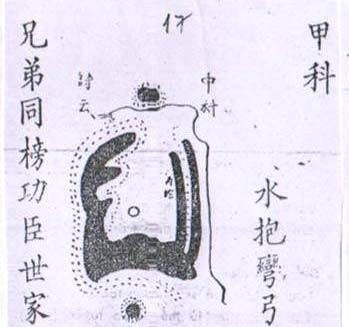 17
甲科
水抱彎弓
中科
詩云
兄弟同榜功臣世家